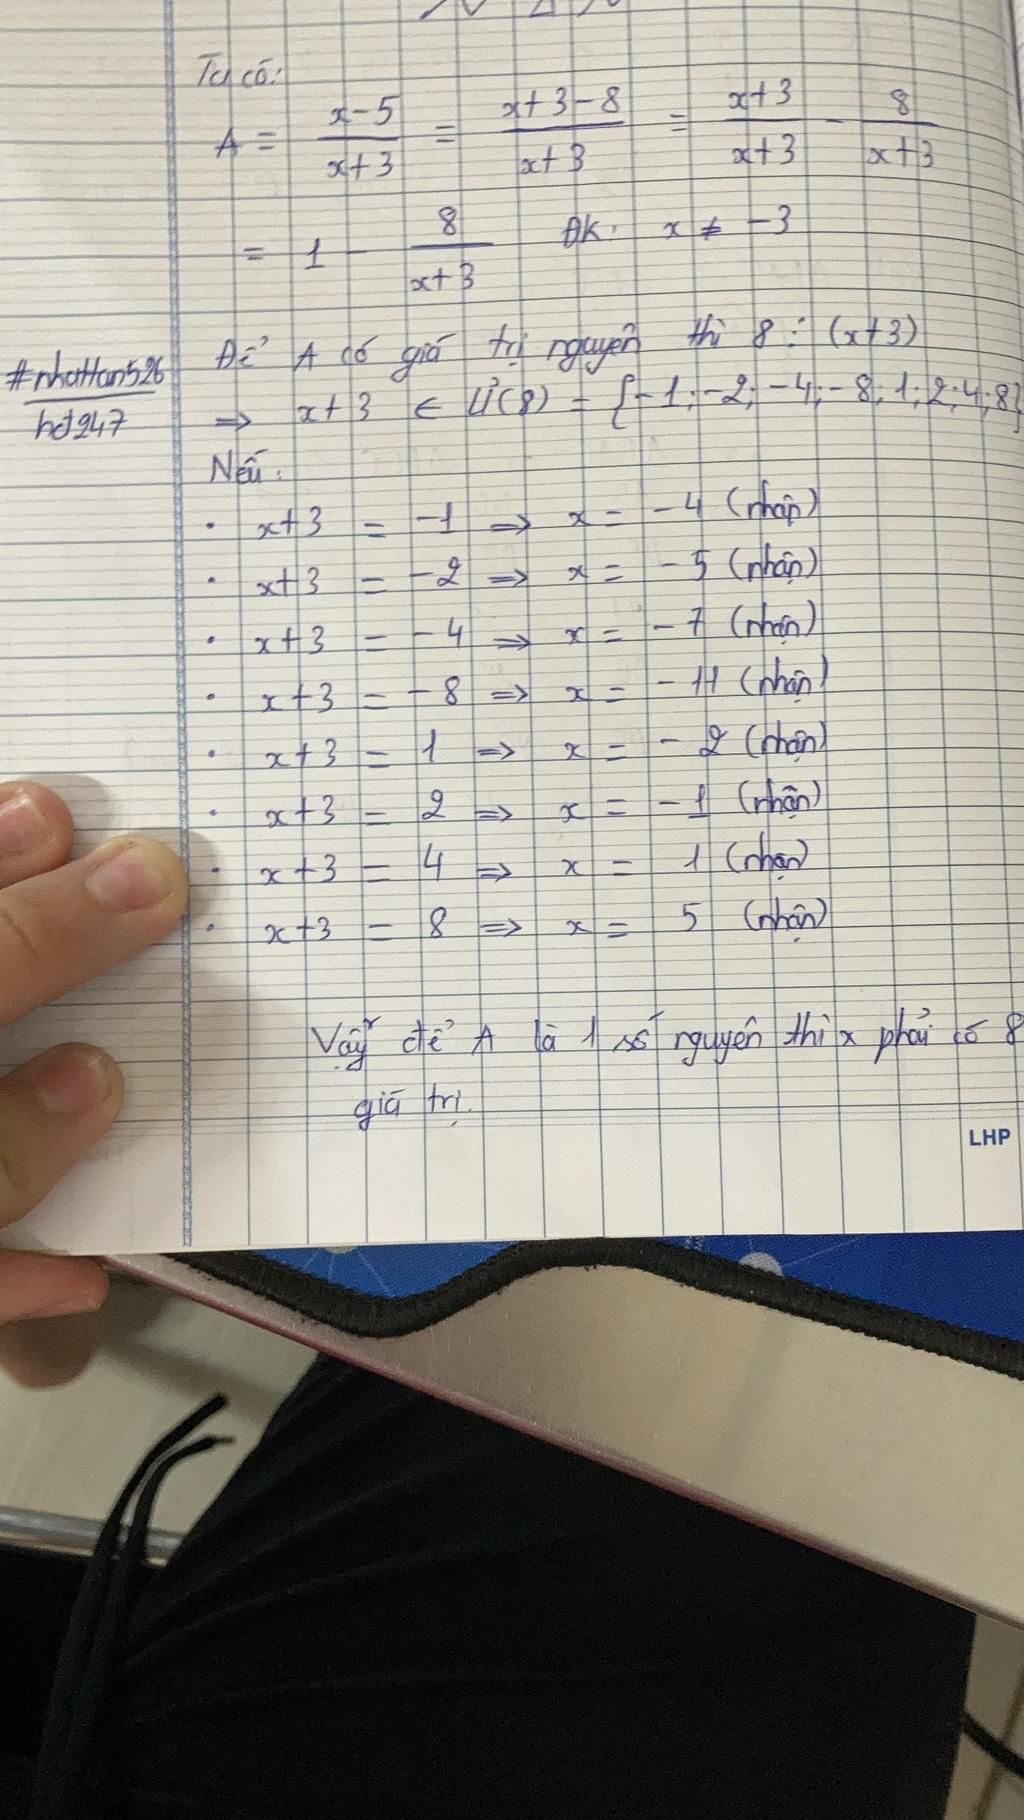 Ta có:
A = \frac{x-5}{x+3} = \frac{x+3-8}{x+3} = \frac{x+3}{x+3} - \frac{8}{x+3}
= 1 - \frac{8}{x+3} ĐK: x ≠ -3
Để A có giá trị nguyên thì 8 ⋮ (x+3)
#nhattan526
hd247
⇒ x+3 ∈ Ư(8) = {-1; -2; -4; -8; 1; 2; 4; 8}
Nếu:
• x+3 = -1 ⇒ x = -4 (nhận)
• x+3 = -2 ⇒ x = -5 (nhận)
• x+3 = -4 ⇒ x = -7 (nhận)
• x+3 = -8 ⇒ x = -11 (nhận)
• x+3 = 1 ⇒ x = -2 (nhận)
• x+3 = 2 ⇒ x = -1 (nhận)
• x+3 = 4 ⇒ x = 1 (nhận)
• x+3 = 8 ⇒ x = 5 (nhận)
Vậy để A là 1 số nguyên thì x phải có 8
giá trị.
LHP